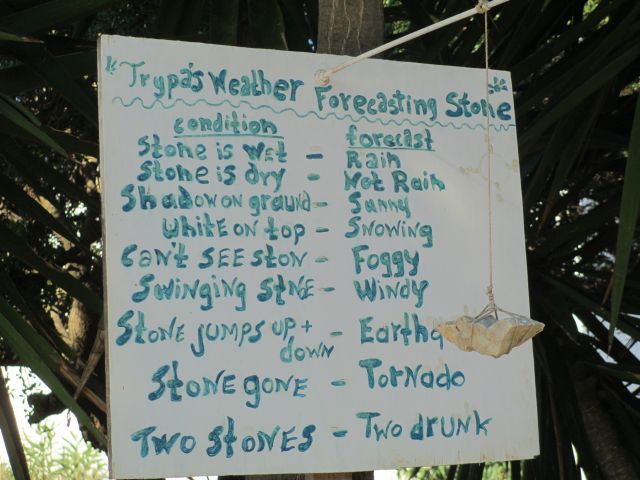 Trypa's Weather Forecasting Stone
condition forecast
Stone is wet - Rain
Stone is dry - Not Rain
Shadow on ground - Sunny
White on top - Snowing
Can't SEE ston - Foggy
Swinging stne - Windy
Stone jumps up + down - Earthq
Stone gone - Tornado
Two stones - Two drunk